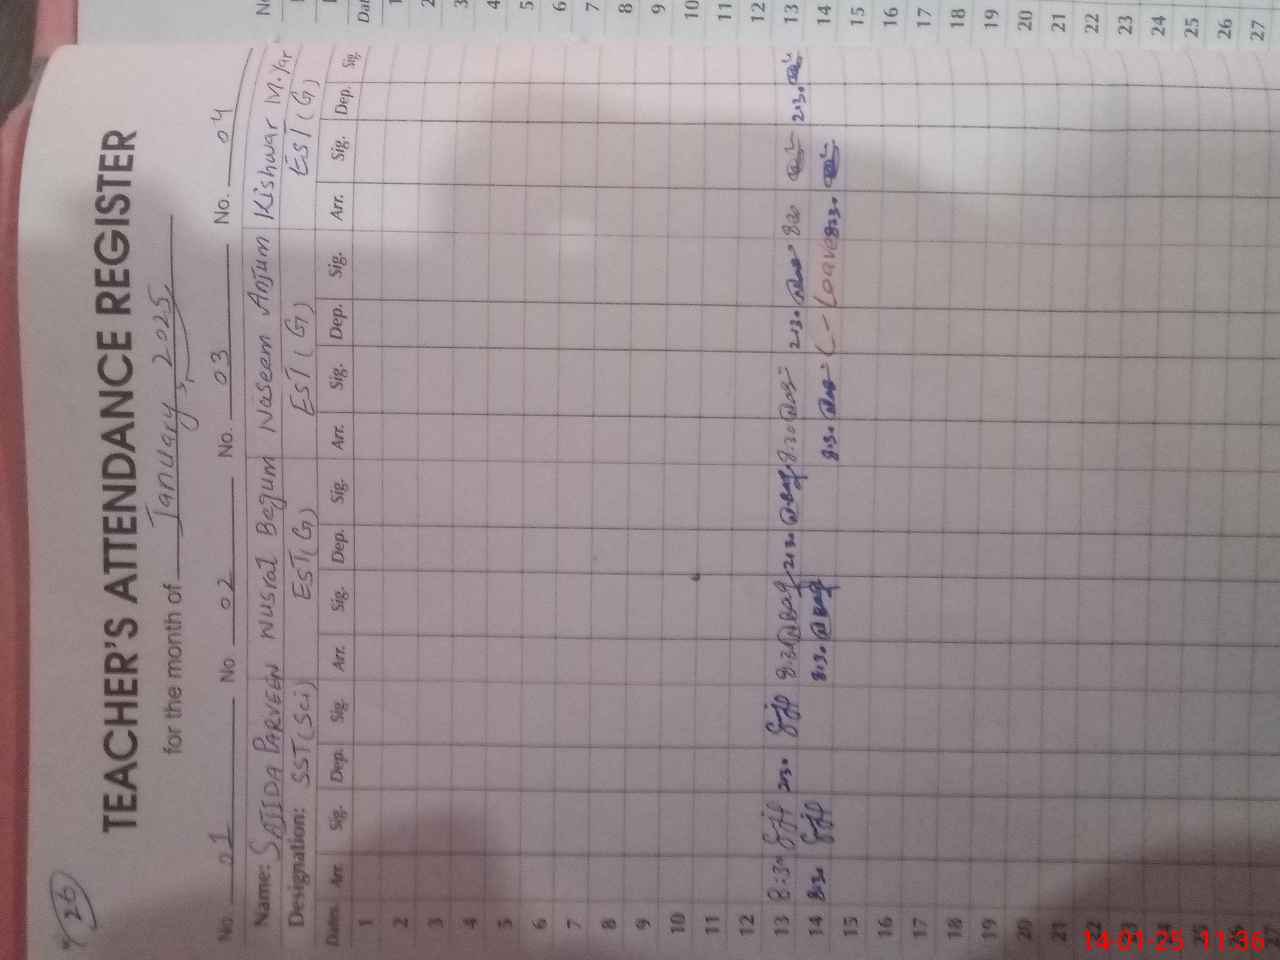 26
TEACHER'S ATTENDANCE REGISTER
for the month of January, 2025.
No. 01 No. 02 No. 03 No. 04
Name: SAJIDA PARVEEN Nusrat Begum Naseem Anjum Kishwar M.Yar
Designation: SST(Sci) EST(G) EST(G) EST(G)
Dates. Arr. Sig. Dep. Sig. Arr. Sig. Dep. Sig. Arr. Sig. Dep. Sig. Arr. Sig. Dep. Sig.
1
2
3
4
5
6
7
8
9
10
11
12
13 8:30 2:30 8:30 2:30 8:30 2:30 830 2:30
14 8:30 8:30 8:30 Leave 8:30
15
16
17
18
19
20
21
22
23
24
25
26
27
1
2
3
4
5
6
7
8
9
10
11
12
13
14
15
16
17
18
19
20
21
22
23
24
25
26
27
14-01-25 11:36